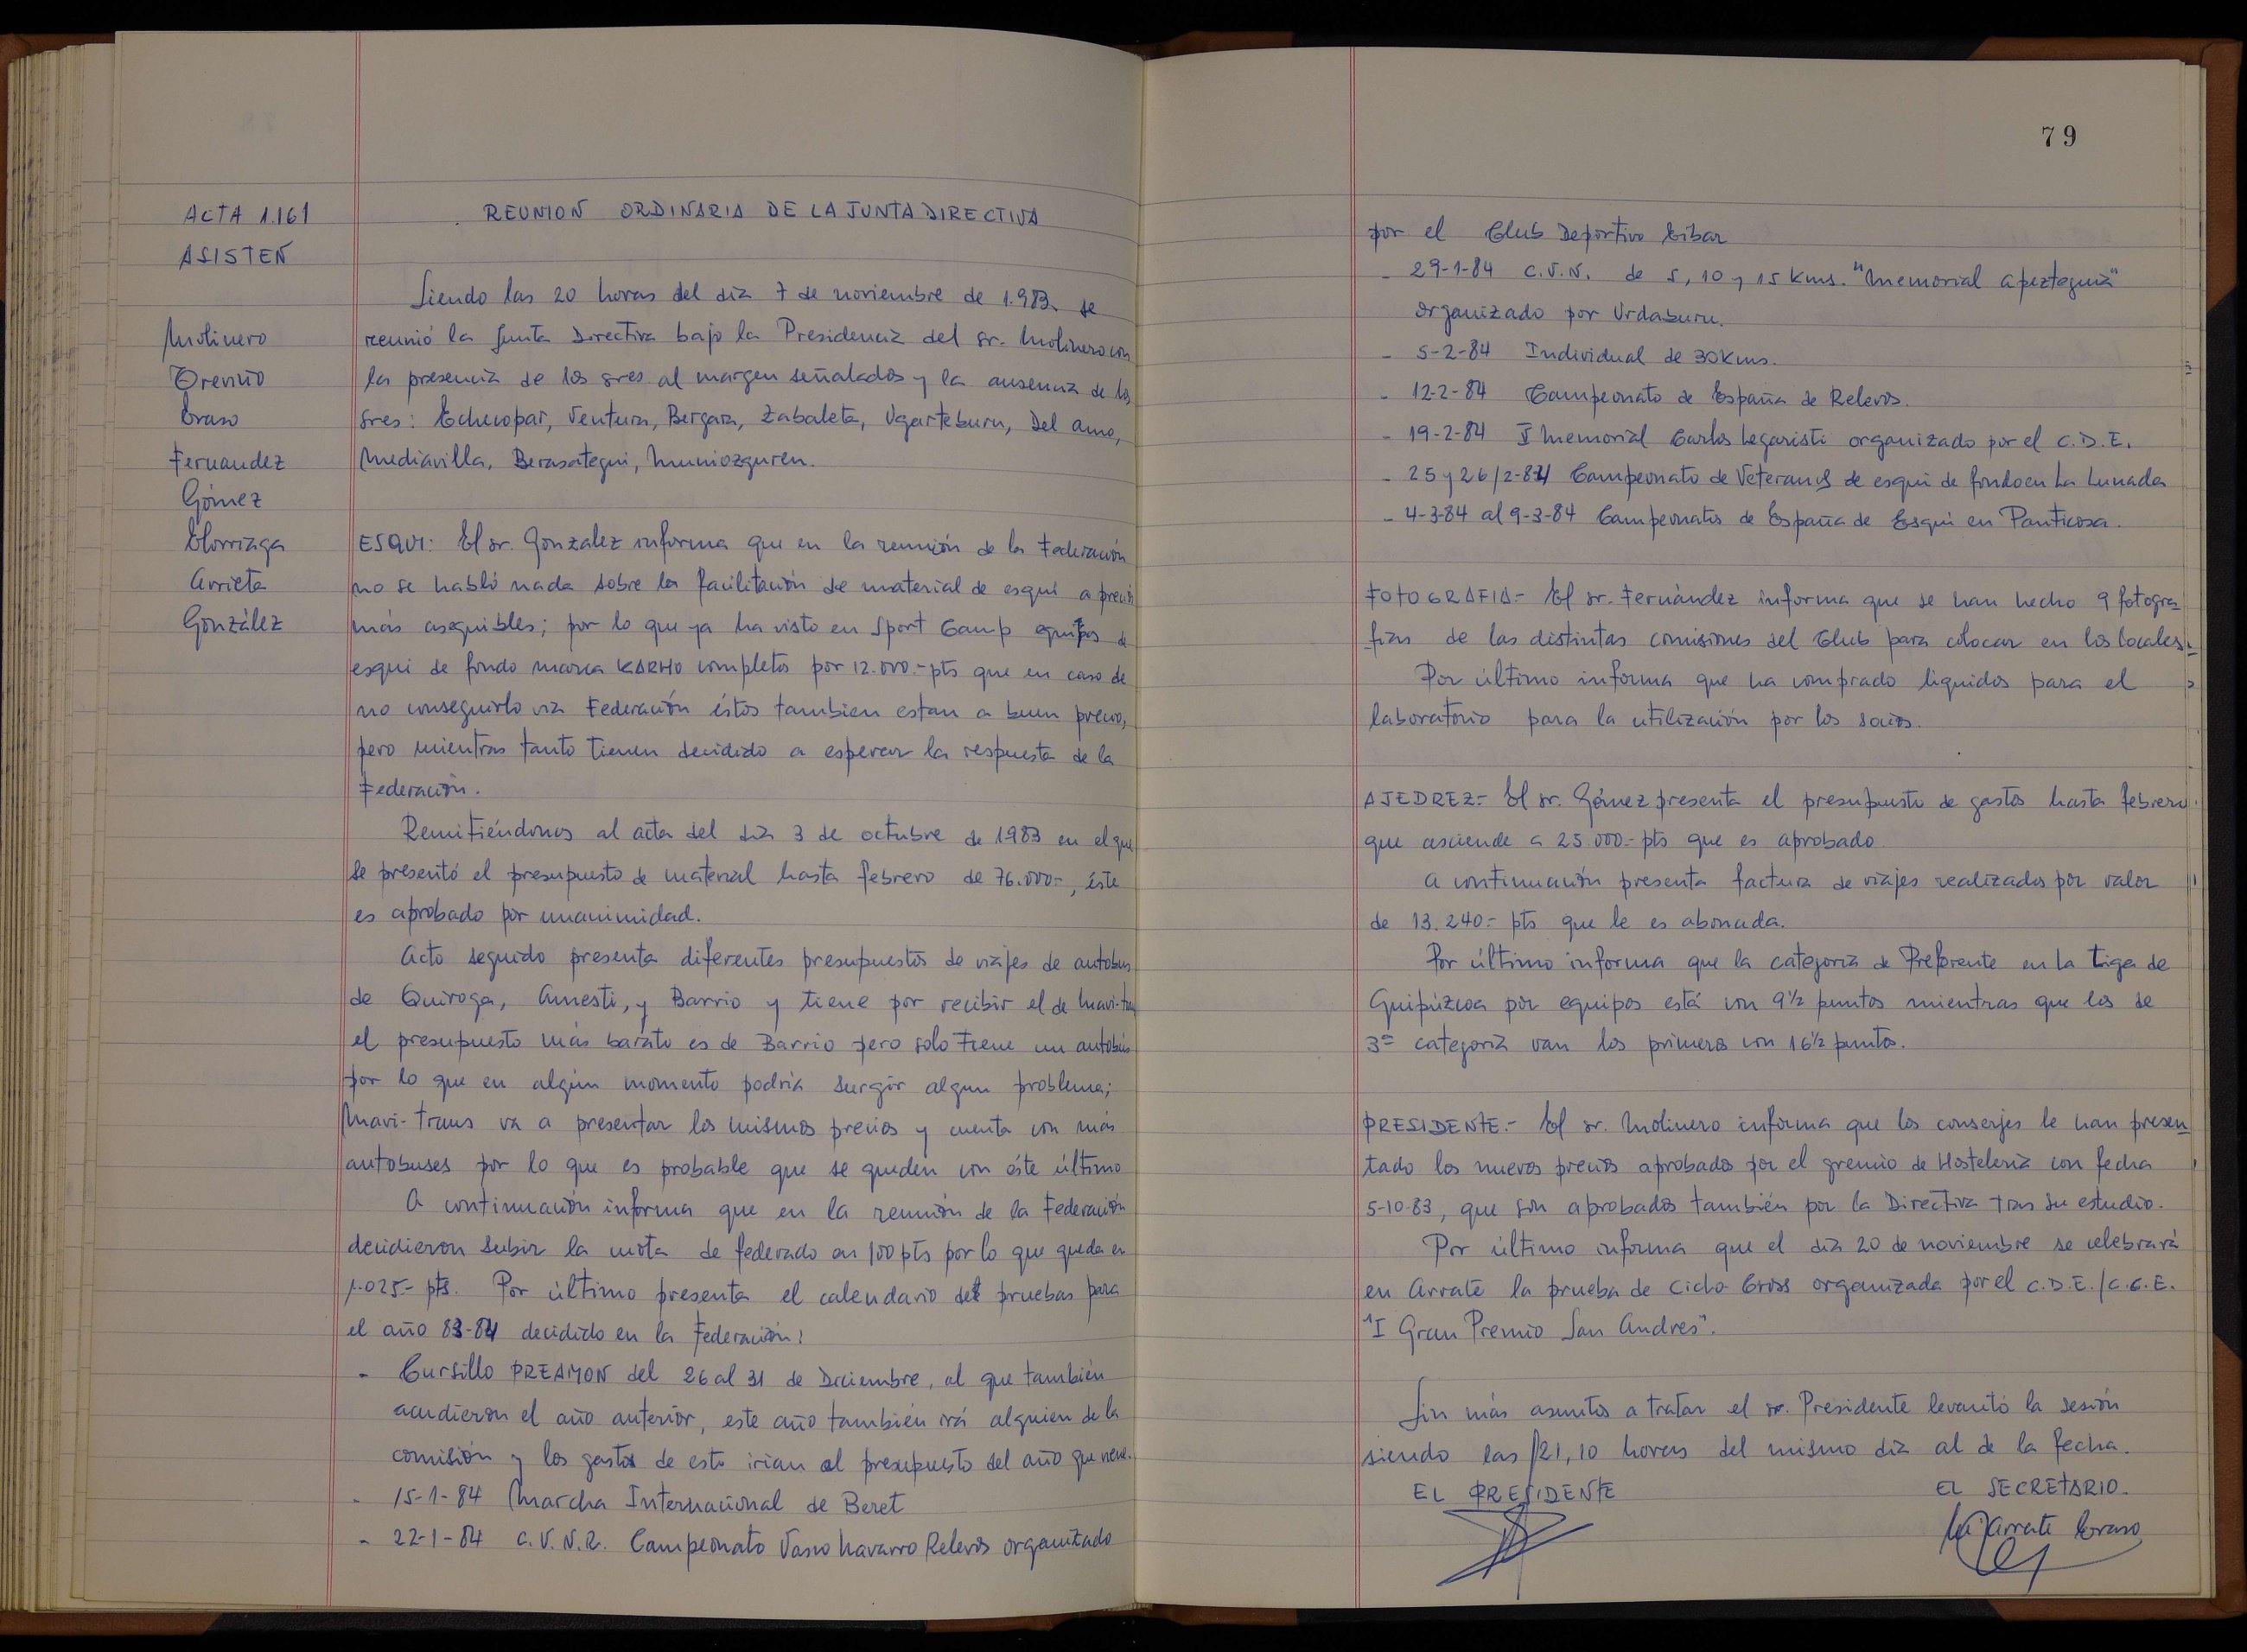 ACTA 1.161
ASISTEN
Molinero
Treviño
Eraso
Fernandez
Gómez
Elorriaga
Arrieta
González
REUNION ORDINARIA DE LA JUNTA DIRECTIVA
Siendo las 20 horas del día 7 de noviembre de 1.983 se
reunió la Junta Directiva bajo la Presidencia del sr. Molinero con
la presencia de los sres al margen señalados y la ausencia de los
sres: Echecopar, Ventura, Bergara, Zabaleta, Ugarteburu, Del amo,
Mediavilla, Berasategui, Muniozguren.
ESQUI: El sr. González informa que en la reunión de la Federación
no se habló nada sobre la facilitación de material de esquí a precios
más asequibles; por lo que ya ha visto en Sport Camp equipos de
esqui de fondo marca KARHO completos por 12.000.- pts que en caso de
no conseguirlo vía Federación éstos tambien estan a buen precio,
pero mientras tanto tienen decidido a esperar la respuesta de la
Federación.
Remitiéndonos al acta del día 3 de octubre de 1983 en el que
se presentó el presupuesto de material hasta febrero de 76.000.-, éste
es aprobado por unanimidad.
Acto seguido presenta diferentes presupuestos de viajes de autobus
de Quiroga, Amesti, y Barrio y tiene por recibir el de Mavi-trans
el presupuesto más barato es de Barrio pero solo tiene un autobús
por lo que en algún momento podría surgir algun problema;
Mavi-Trans va a presentar los mismos precios y cuenta con más
autobuses por lo que es probable que se queden con éste último
A continuación informa que en la reunión de la Federación
decidieron subir la cuota de federado en 100 pts por lo que queda en
1.025.- pts. Por último presenta el calendario de pruebas para
el año 83-84 decidido en la Federación:
- Cursillo PREAMON del 26 al 31 de Diciembre, al que también
acudieron el año anterior, este año también irá alguien de la
comisión y los gastos de esto irian al presupuesto del año que viene.
- 15-1-84 Marcha Internacional de Beret
- 22-1-84 C.V.N.R. Campeonato Vasco Navarro Relevos organizado
79
por el Club Deportivo Eibar
- 29-1-84 C.V.N. de 5, 10 y 15 kms. "Memorial Apezteguia"
organizado por Urdaburu.
- 5-2-84 Individual de 30 Kms.
- 12-2-84 Campeonato de España de Relevos.
- 19-2-84 I Memorial Carlos Legaristi organizado por el C.D.E.
- 25 y 26/2-84 Campeonato de Veteranos de esqui de fondo en La Lunada
- 4-3-84 al 9-3-84 Campeonatos de España de Esqui en Panticosa.
FOTOGRAFIA.- El sr. Fernández informa que se han hecho 9 fotogra-
fias de las distintas comisiones del Club para colocar en los locales.
Por último informa que ha comprado liquidos para el
laboratorio para la utilización por los socios.
AJEDREZ.- El sr. Gómez presenta el presupuesto de gastos hasta febrero
que asciende a 25.000.- pts que es aprobado
A continuación presenta factura de viajes realizados por valor
de 13.240.- pts que le es abonada.
Por último informa que la categoría de Preferente en la Liga de
Guipúzcoa por equipos está con 9 1/2 puntos mientras que los de
3ª categoría van los primeros con 16 1/2 puntos.
PRESIDENTE.- El sr. Molinero informa que los conserjes le han presen-
tado los nuevos precios aprobados por el gremio de Hostelería con fecha
5-10-83, que son aprobados también por la Directiva tras su estudio.
Por último informa que el día 20 de noviembre se celebrará
en Arrate la prueba de Ciclo-Cross organizada por el C.D.E./C.C.E.
"I Gran Premio San Andres".
Sin más asuntos a tratar el sr. Presidente levantó la sesión
siendo las 21,10 horas del mismo día al de la fecha.
EL PRESIDENTE
EL SECRETARIO.
Mª Arrate Eraso